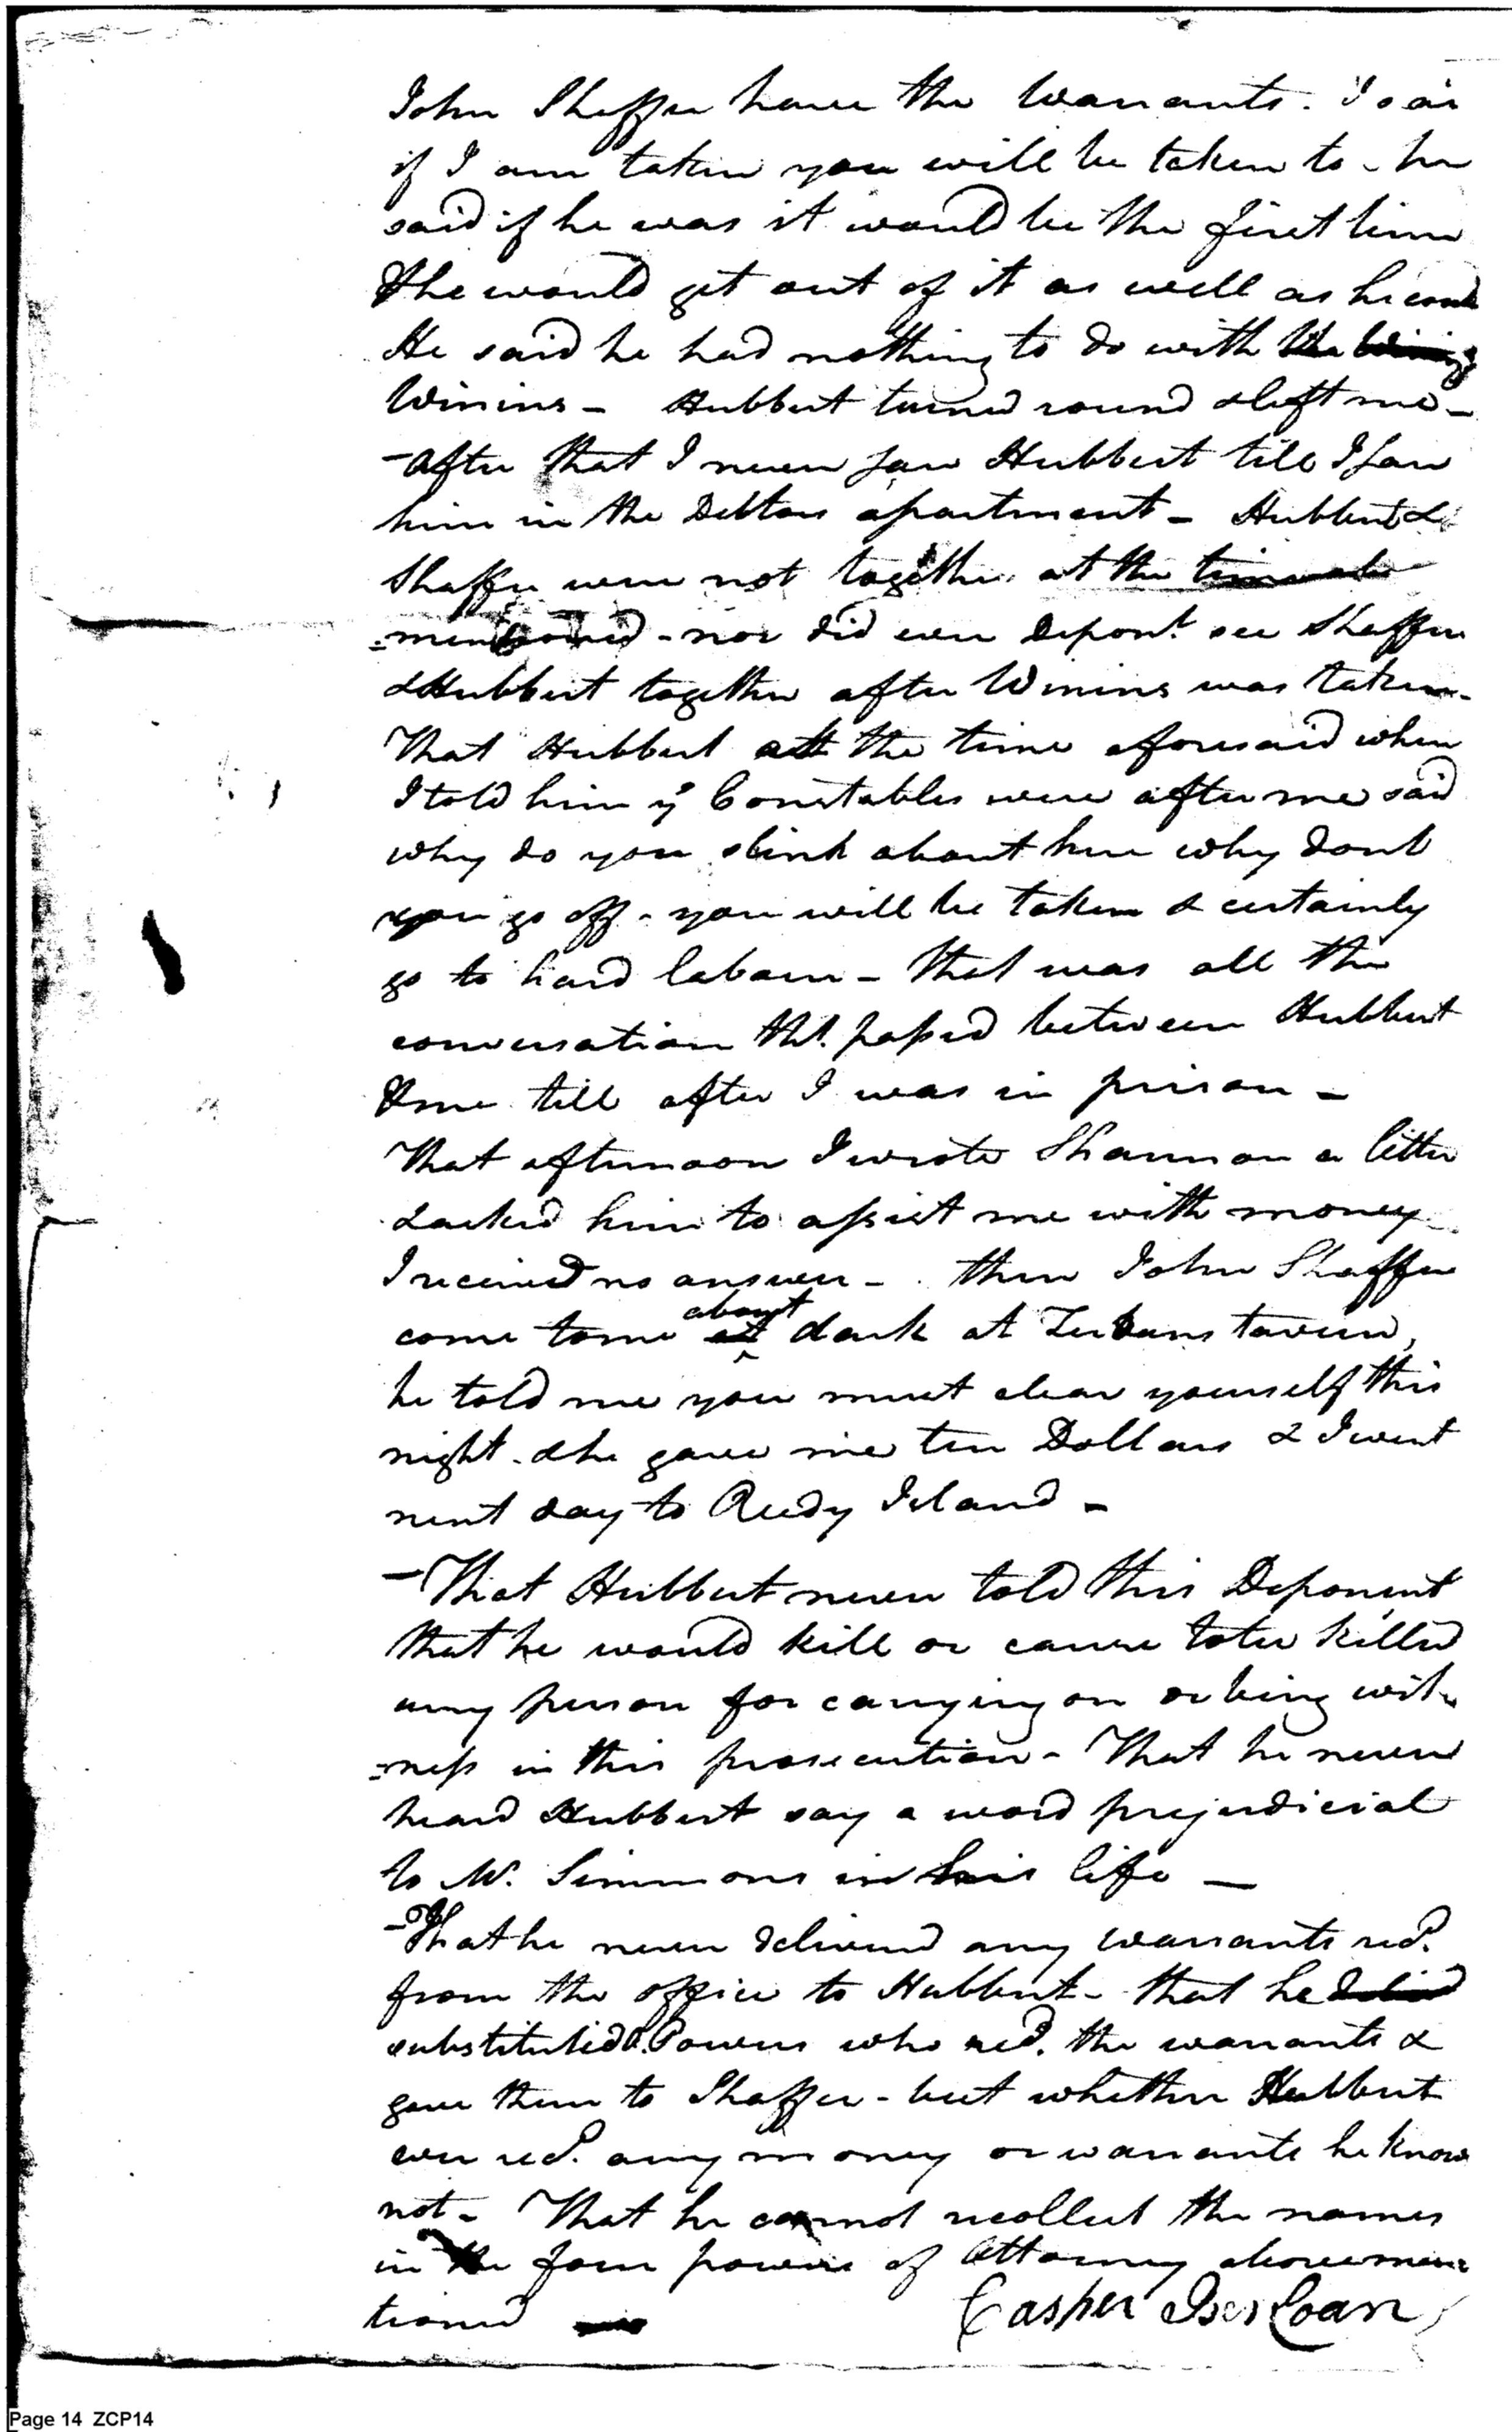 John Shaffer have the Warrants. I said
if I am taken you will be taken to - he
said if he was it would be the first time
& he would get out of it as well as he could
He said he had nothing to do with the Winings
Winins - Hubbert turned round & left me -
- After that I never saw Hubbert till I saw
him in the Debtors apartment - Hubbert &
Shaffer were not together at the time
mentioned - nor did ever Depont. see Shaffer
& Hubbert together after Winins was taken -
That Hubbert at the time aforesaid when
I told him ye Constables were after me said
why do you slink about here why dont
you go off - you will be taken & certainly
go to hard labour - that was all the
conversation tht. passed between Hubbert
& me till after I was in prison -
That afternoon I wrote Shannon a letter
& asked him to assist me with money
I received no answer - then John Shaffer
come to me at about dark at tavern,
he told me you must clear yourself this
night - & he gave me ten Dollars & I went
next day to Reedy Island -
- That Hubbert never told this Deponent
that he would kill or cause to be killed
any person for carrying on or being wit-
=ness in this prosecution - That he never
heard Hubbert say a word prejudicial
to Mr. Simmons in his life -
- That he never delivered any warrants recd.
from the office to Hubbert - that he
substituted Powers who recd. the warrants &
gave them to Shaffer - but whether Hubbert
ever recd. any money or warrants he knows
not - That he cannot recollect the names
in the four powers of Attorney abovemen=
tioned
Casper Iserloan
Page 14 ZCP14